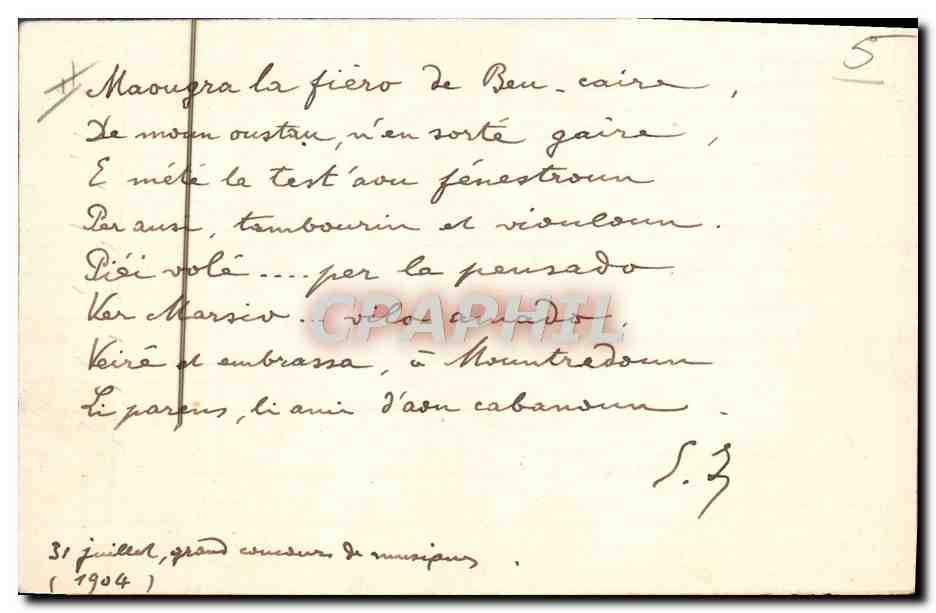 5
Maougra la fièro de Beu-caire,
De moun oustau, n'en sorté gaire,
E mété la test'aou fénestroun
Per ausi, tambourin et viouloun.
Pièi volé.... per la pensado
Ver Marsio... vilo amado,
Veiré et embrassa, à Mountredoun
Li parens, li amis d'aou cabanoun.
31 juillet, grand concours de musiques.
(1904)
CPAPHIL